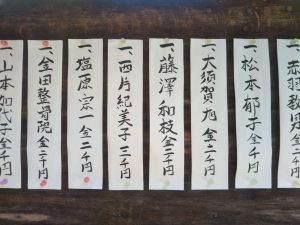 一、赤羽
一、松本郁子金二千円
一、大須賀旭金二千円
一、藤澤和枝金二千円
一、西片紀美子二千円
一、塩原宗一金二千円
一、金田整骨院金二千円
山本加代子金二千円